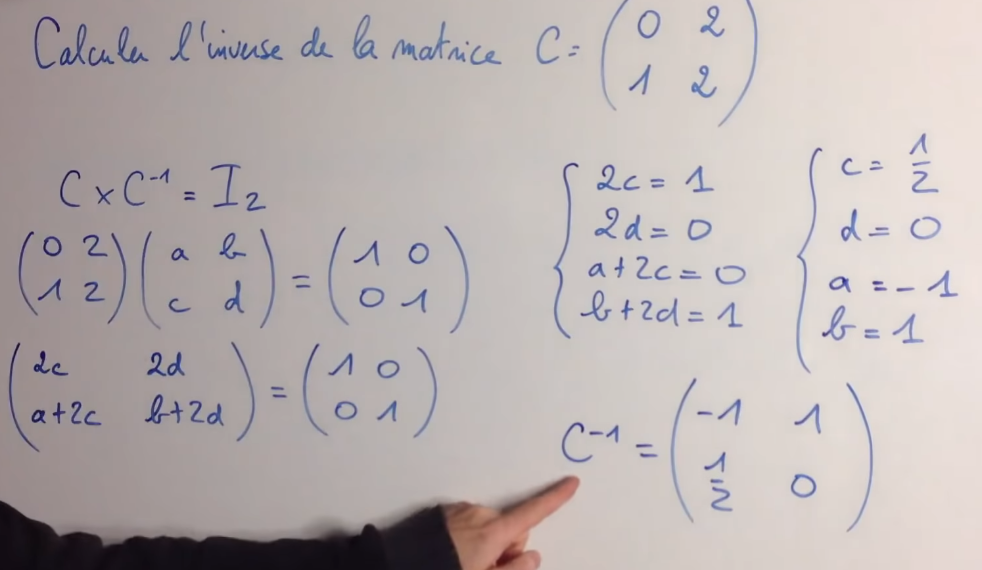 Calculer l'inverse de la matrice C = ( 0 2
1 2 )
C × C⁻¹ = I₂
( 0 2 ) ( a b ) = ( 1 0 )
( 1 2 ) ( c d ) ( 0 1 )
( 2c 2d ) = ( 1 0 )
( a+2c b+2d ) ( 0 1 )
{ 2c = 1
2d = 0
a+2c = 0
b+2d = 1
{ c = 1/2
d = 0
a = -1
b = 1
C⁻¹ = ( -1 1
1/2 0 )